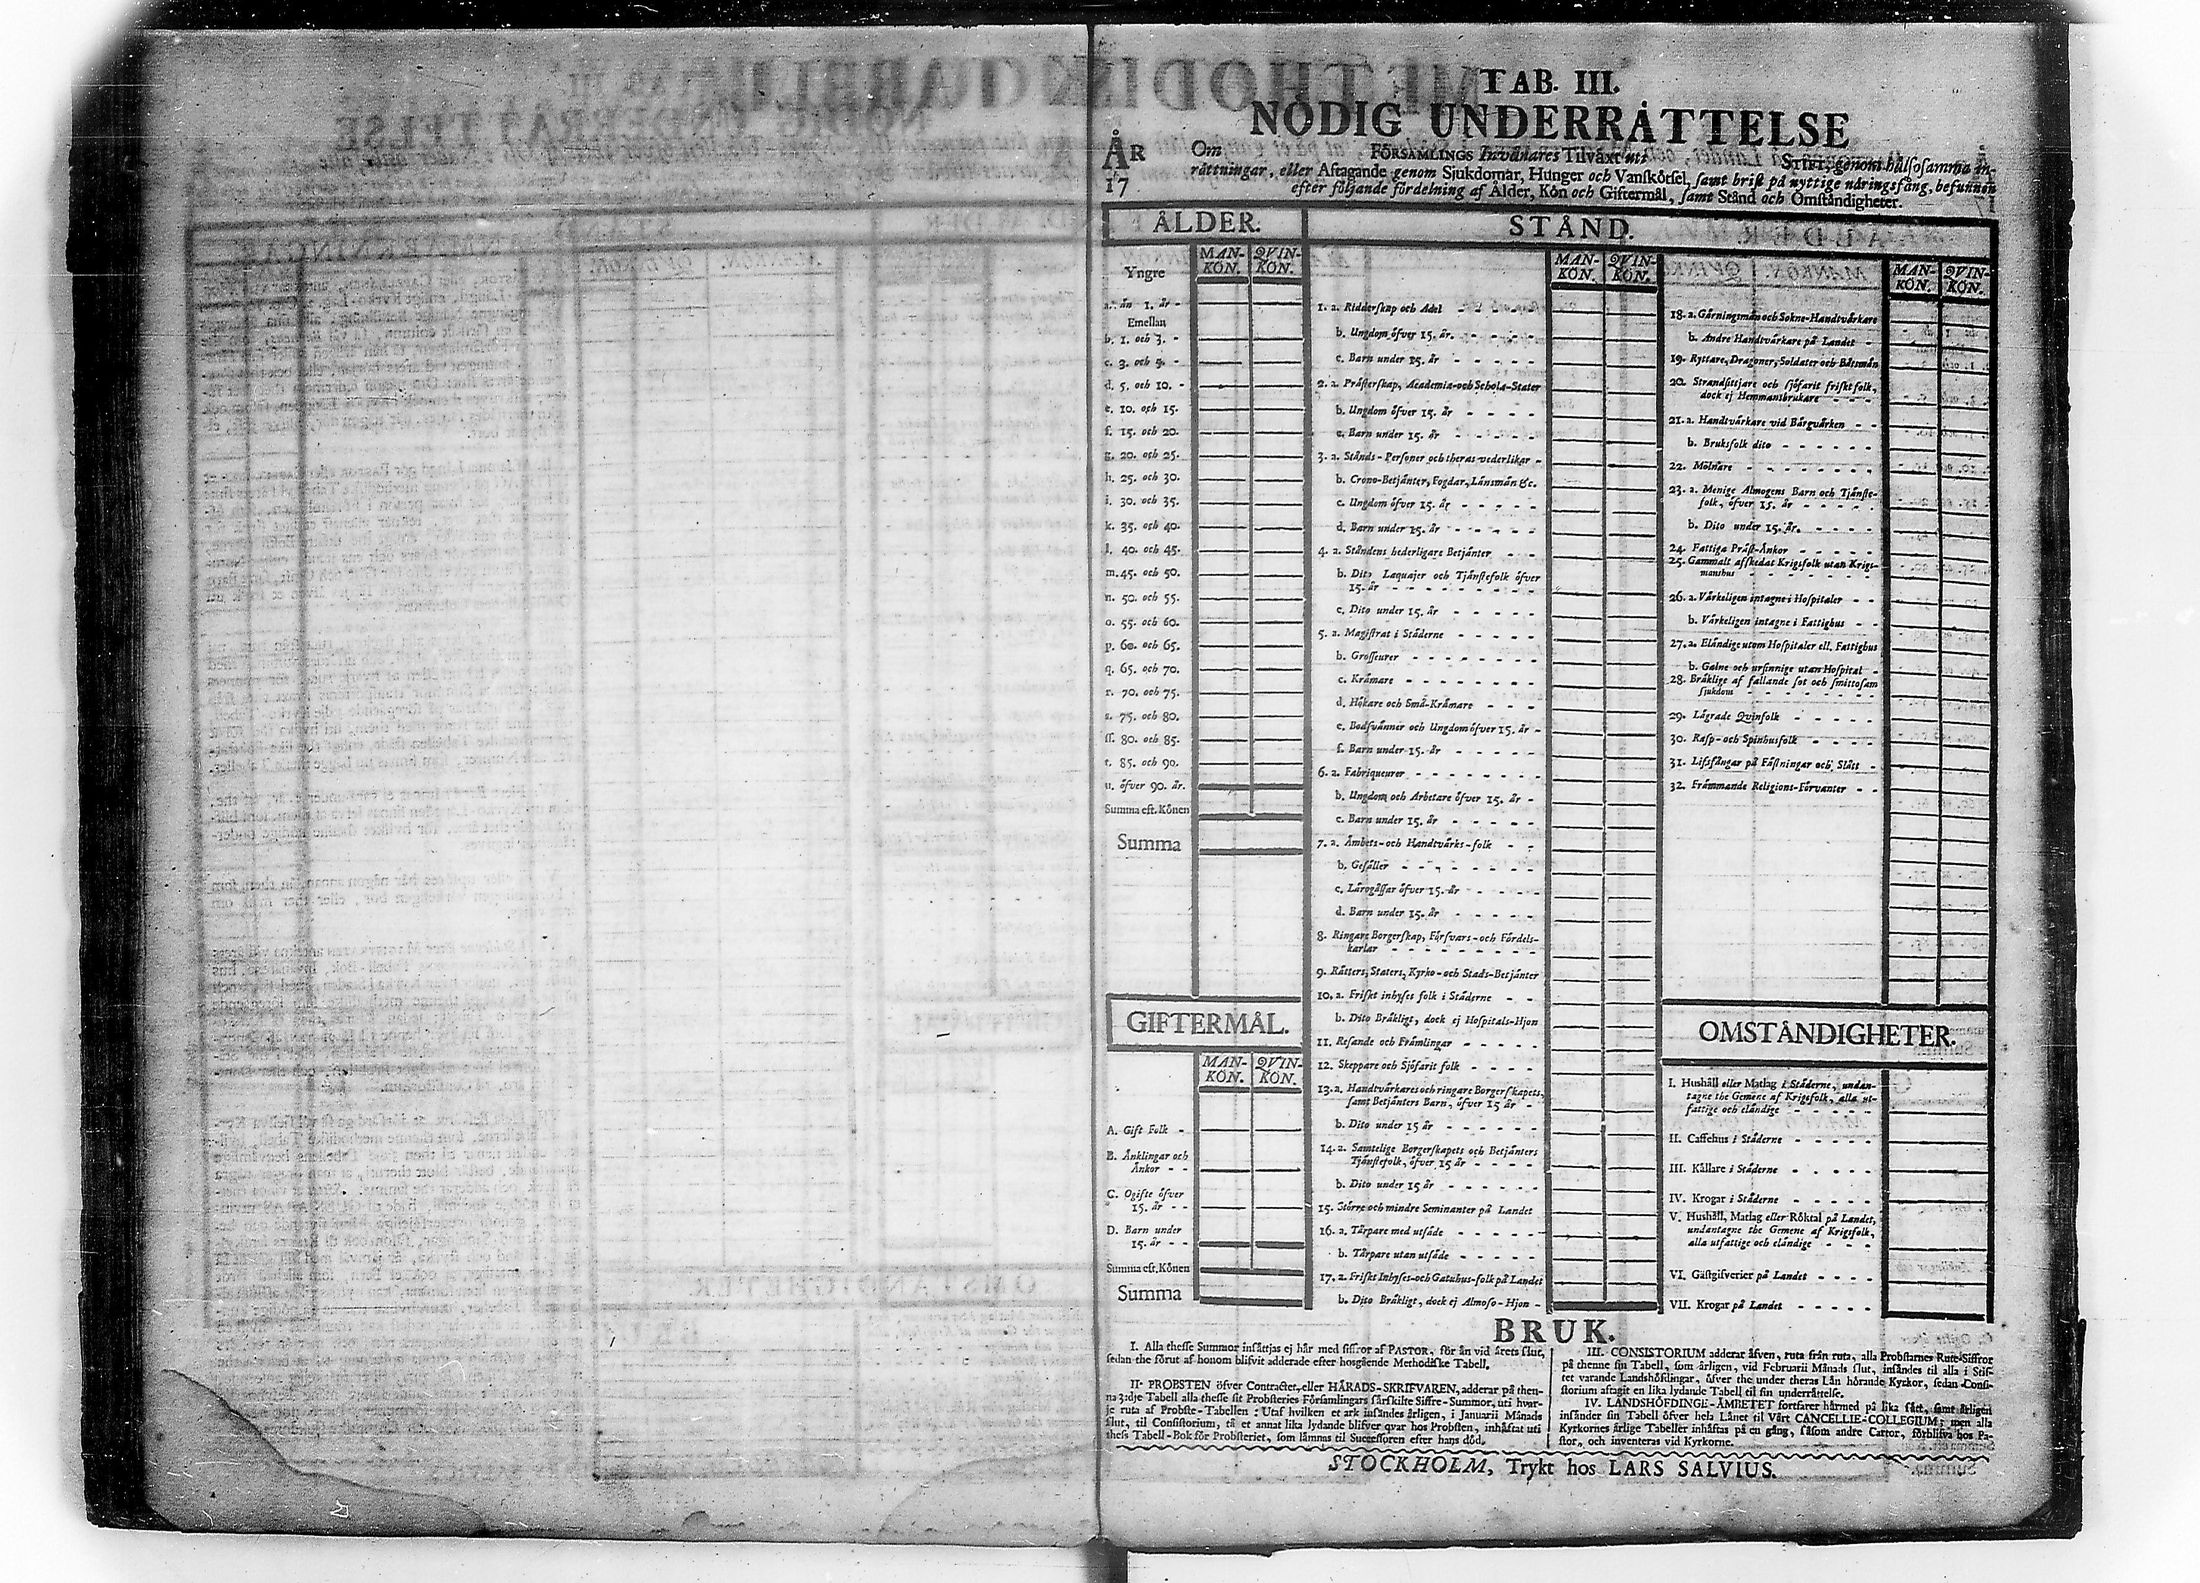 TAB. III.
NÖDIG UNDERRÅTTELSE
ÅR
17
Om FÖRSAMLINGS Invånares Tilväxt uti STIFT, genom hålsosamma in-
råttningar, eller Aftagande genom Sjukdomar, Hunger och Vanskötsel, samt brist på nyttige näringsfång, befunnen
efter följande fördelning af Ålder, Kön och Giftermål, samt Stånd och Omståndigheter.
ÅLDER.
MAN-KÖN. QVIN-KÖN.
Yngre
a. ån 1. år -
Emellan
b. 1. och 3. -
c. 3. och 5. -
d. 5. och 10. -
e. 10. och 15.
f. 15. och 20.
g. 20. och 25.
h. 25. och 30.
i. 30. och 35.
k. 35. och 40.
l. 40. och 45.
m. 45. och 50.
n. 50. och 55.
o. 55. och 60.
p. 60. och 65.
q. 65. och 70.
r. 70. och 75.
s. 75. och 80.
ss. 80. och 85.
t. 85. och 90.
u. öfver 90. år.
Summa eft. Könen
Summa
GIFTERMÅL.
MAN-KÖN. QVIN-KÖN.
A. Gift Folk -
B. Änklingar och
Änkor - -
C. Ogifte öfver
15. år - -
D. Barn under
15. år - -
Summa eft. Könen
Summa
STÅND.
MAN-KÖN. QVIN-KÖN.
1. a. Ridderskap och Adel
b. Ungdom öfver 15. år.
c. Barn under 15. år
2. a. Pråsterskap, Academia- och Schola-Stater
b. Ungdom öfver 15. år
c. Barn under 15. år
3. a. Stånds-Personer och theras vederlikar -
b. Crono-Betjånter, Fogdar, Lånsmån &c.
c. Ungdom öfver 15. år
d. Barn under 15. år
4. a. Ståndens hederligare Betjånter
b. Dito Laquajer och Tjånstefolk öfver
15. år
c. Dito under 15. år
5. a. Magistrat i Städerne
b. Grosseurer
c. Kråmare
d. Hökare och Små-Kråmare
e. Bodsvånner och Ungdom öfver 15. år -
f. Barn under 15. år
6. a. Fabriqueurer
b. Ungdom och Arbetare öfver 15. år -
c. Barn under 15. år
7. a. Ämbets- och Handtvårks-folk
b. Gesåller
c. Lårogåssar öfver 15. år
d. Barn under 15. år
8. Ringare Borgerskap, Försvars- och Fördels-
karlar
9. Råtters, Staters, Kyrko- och Stads-Betjånter
10. a. Friskt inhyses folk i Ståderne
b. Dito Bråkligt, dock ej Hospitals-Hjon
11. Resande och Fråmlingar
12. Skeppare och Sjöfarit folk
13. a. Handtvårkares och ringare Borgerskapets,
samt Betjånters Barn, öfver 15 år -
b. Dito under 15 år
14. a. Samtelige Borgerskapets och Betjånters
Tjånstefolk, öfver 15 år
b. Dito under 15 år
15. Större och mindre Seminanter på Landet
16. a. Tårpare med utsåde
b. Tårpare utan utsåde
17. a. Friskt Inhyses- och Gatuhus-folk på Landet
b. Dito Bråkligt, dock ej Almoso-Hjon -
MAN-KÖN. QVIN-KÖN.
18. a. Gårningsmån och Sokne-Handtvårkare
b. Andre Handtvårkare på Landet -
19. Ryttare, Dragoner, Soldater och Båtsmån
20. Strandsittjare och sjöfarit friskt folk,
dock ej Hemmansbrukare
21. a. Handtvårkare vid Bårgvårken
b. Bruksfolk dito
22. Mölnare
23. a. Menige Almogens Barn och Tjånste-
folk, öfver 15. år
b. Dito under 15. år.
24. Fattiga Pråst-Änkor
25. Gammalt afskedat Krigsfolk utan Krigs-
manshus
26. a. Vårkeligen intagne i Hospitaler
b. Vårkeligen intagne i Fattighus
27. a. Elåndige utom Hospitaler ell. Fattighus
b. Galne och ursinnige utan Hospital -
28. Bråklige af fallande sot och smittosam
sjukdom
29. Lågrade Qvinfolk
30. Rasp- och Spinhusfolk
31. Lifsfångar på Fåstningar och Slått -
32. Fråmmande Religions-Förvanter
OMSTÅNDIGHETER.
I. Hushåll eller Matlag i Ståderne, undan-
tagne the Gemene af Krigsfolk, alla ut-
fattige och elåndige
II. Caffehus i Ståderne
III. Kållare i Ståderne
IV. Krogar i Ståderne
V. Hushåll, Matlag eller Röktal på Landet,
undantagne the Gemene af Krigsfolk,
alla utfattige och elåndige
VI. Gåstgifverier på Landet
VII. Krogar på Landet
BRUK.
I. Alla thesse Summor insåttjas ej hår med siffror af PASTOR, för ån vid årets slut,
sedan the förut af honom blifvit adderade efter hosgående Methodiske Tabell.
II. PROBSTEN öfver Contractet, eller HÅRADS-SKRIFVAREN, adderar på then-
na 3:dje Tabell alla thesse sit Probsteries Församlingars sårskilte Siffre-Summor, uti hvar-
je ruta af Probste-Tabellen: Utaf hvilken et ark insåndes årligen, i Januarii Månads
slut, til Consistorium, tå et annat lika lydande blifver qvar hos Probsten, inhåftat uti
thess Tabell-Bok för Probsteriet, som låmnas til Successoren efter hans död.
III. CONSISTORIUM adderar åfven, ruta från ruta, alla Probstarnes Rute-Siffror
på thenne sin Tabell, som årligen, vid Februarii Månads slut, insåndes til alla i Stif-
tet varande Landshöfdingar, öfver the under theras Lån hörande Kyrkor, sedan Consi-
storium aftagit en lika lydande Tabell til sin underråttelse.
IV. LANDSHÖFDINGE-ÄMBETET fortfarer hårmed på lika sått, samt årligen
insånder sin Tabell öfver hela Lånet til Vårt CANCELLIE-COLLEGIUM; men alla
Kyrkornes årlige Tabeller inhåftas på en gång, såsom andre Cartor, förblifva hos Pa-
stor, och inventeras vid Kyrkorne.
STOCKHOLM, Trykt hos LARS SALVIUS.